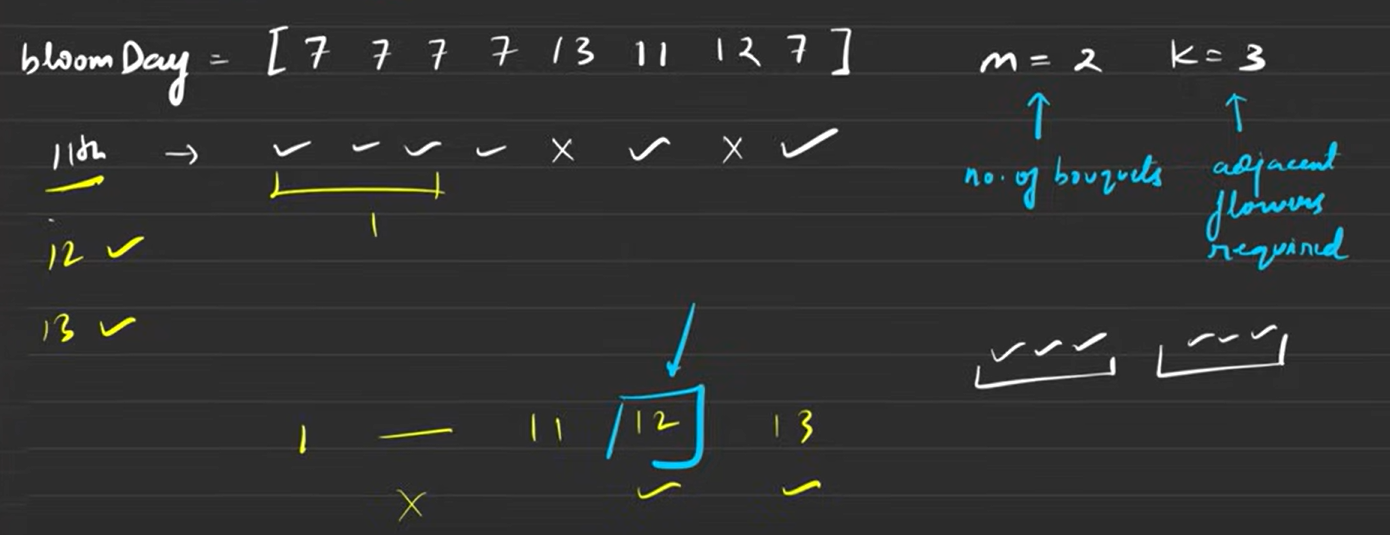 bloomDay = [ 7 7 7 7 13 11 12 7 ] m = 2 K = 3
11th → ✓ ✓ ✓ ✓ x ✓ x ✓
no. of bouquets
adjacent
flowers
required
1
12 ✓
13 ✓
✓ ✓ ✓ ✓ ✓ ✓
1 — 11 12 13
x ✓ ✓